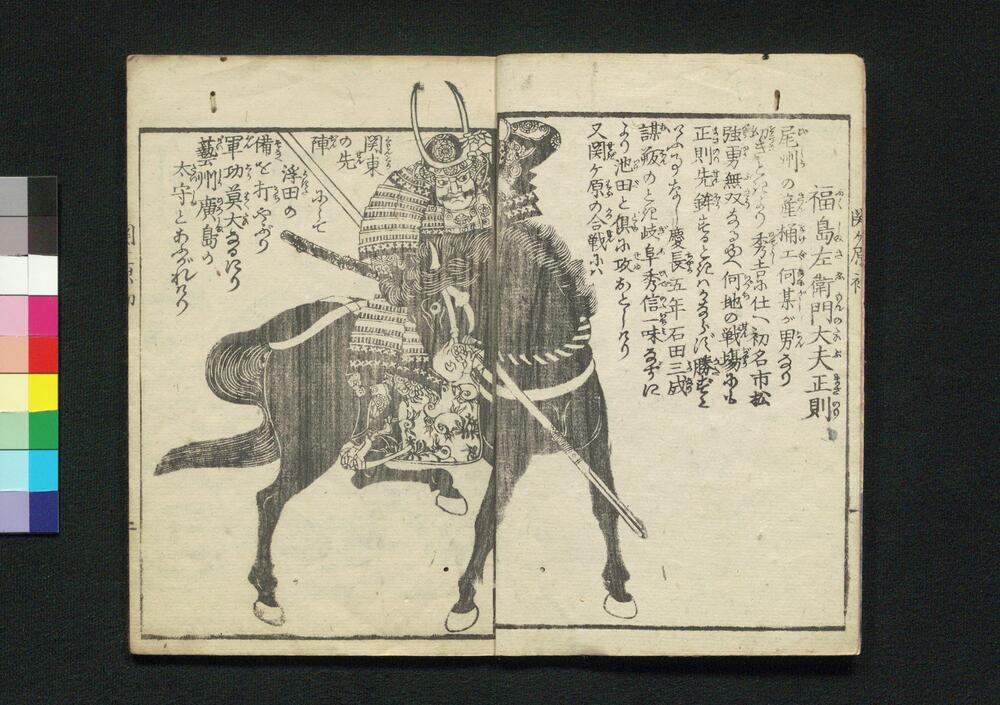 福島左衛門大夫正則
尾州の産桶工何某が男なり
いときなきより秀吉に仕へ初名市松
強勇無双なるゆへ何地の戦場にも
正則先鉾するときハかならず勝ずと
いふ事なし慶長五年石田三成
謀叛のとき岐阜秀信一味なすに
より池田と倶に攻おとしけり
又関ヶ原の合戦にハ
関東
の先
陣にして
浮田の
備を打やぶり
軍功莫大なるにより
藝州廣島の
太守とあふがれけり